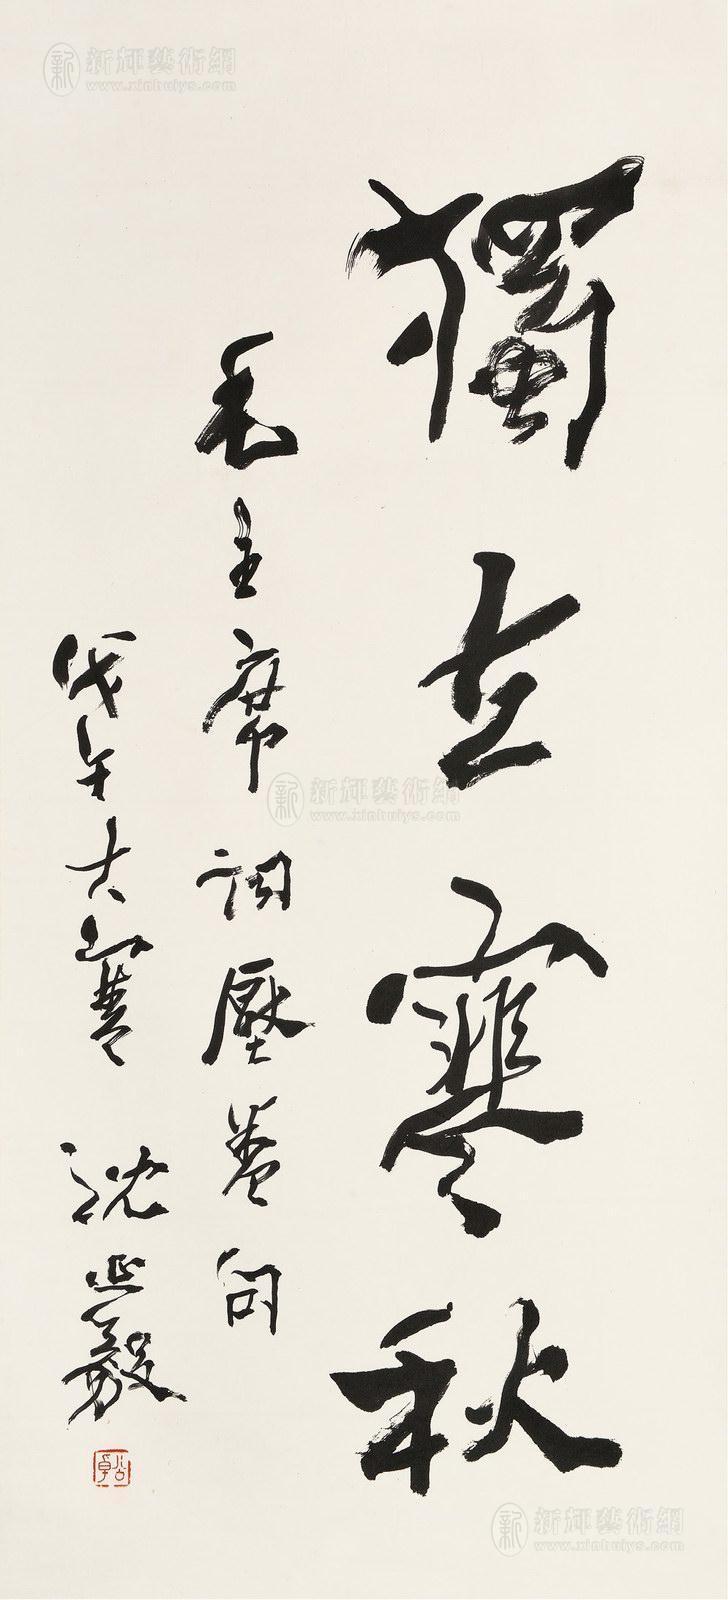 獨立寒秋
毛主席詞壓卷句
戊午大寒 沈延毅
新輝藝術網
www.xinhuiys.com
新輝藝術網
www.xinhuiys.com
新輝藝術網
www.xinhuiys.com